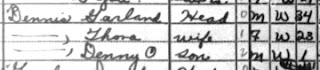 Dennis Garland Head O M W 34
——, Thora wife 1 F W 23
——, Denny O son 2 M W 1